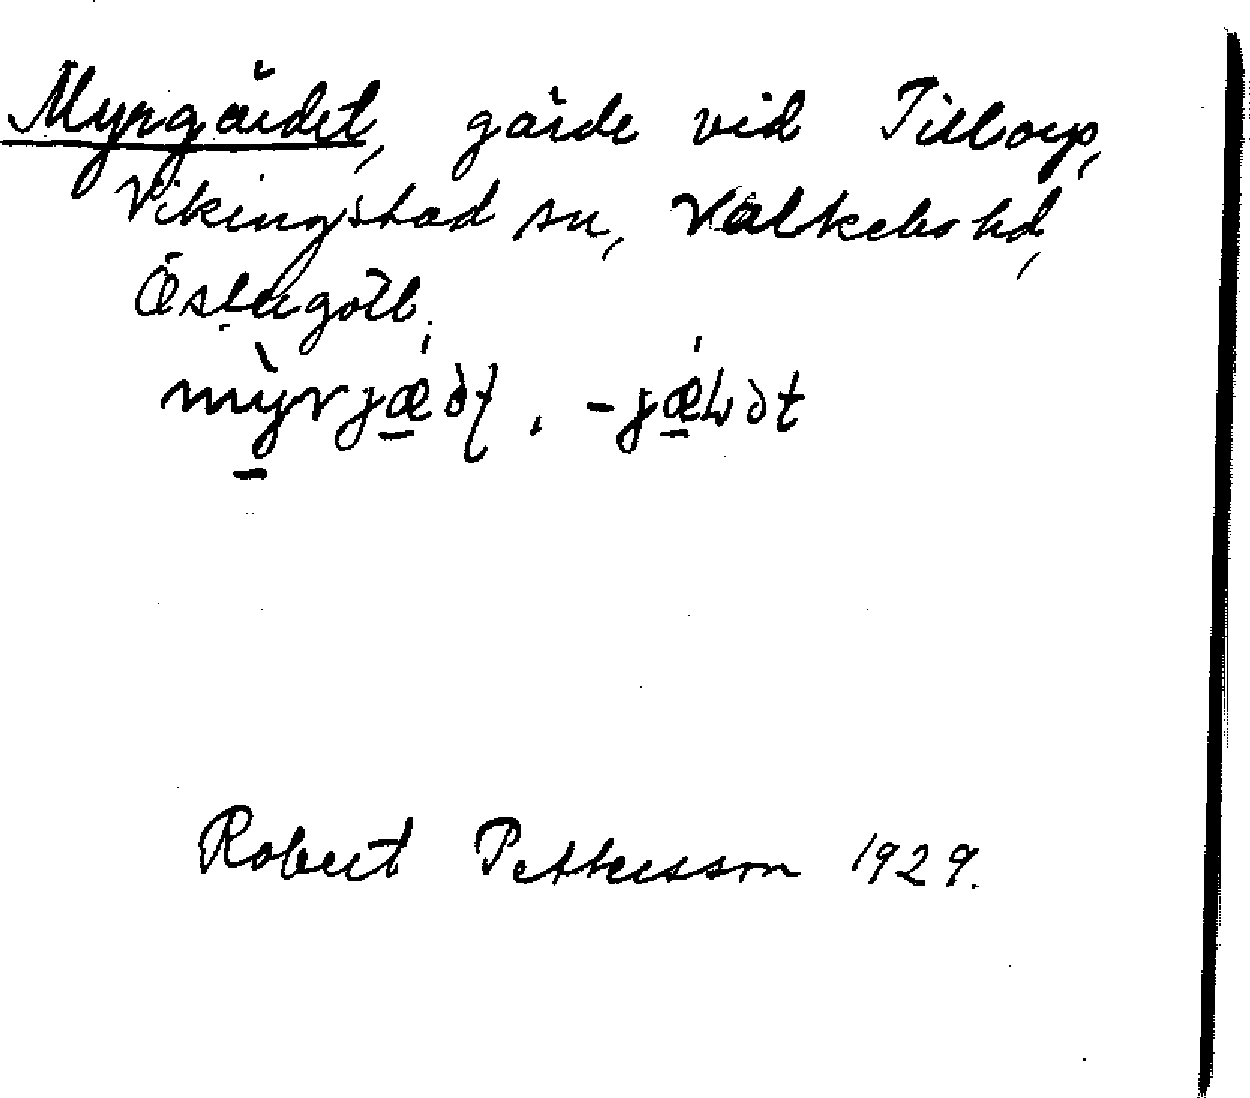 Myrgärdet, gärde vid Tillorp,
Vikingstad sn, Valkebo hd,
Östergötl.
Robert Pettersson 1929.